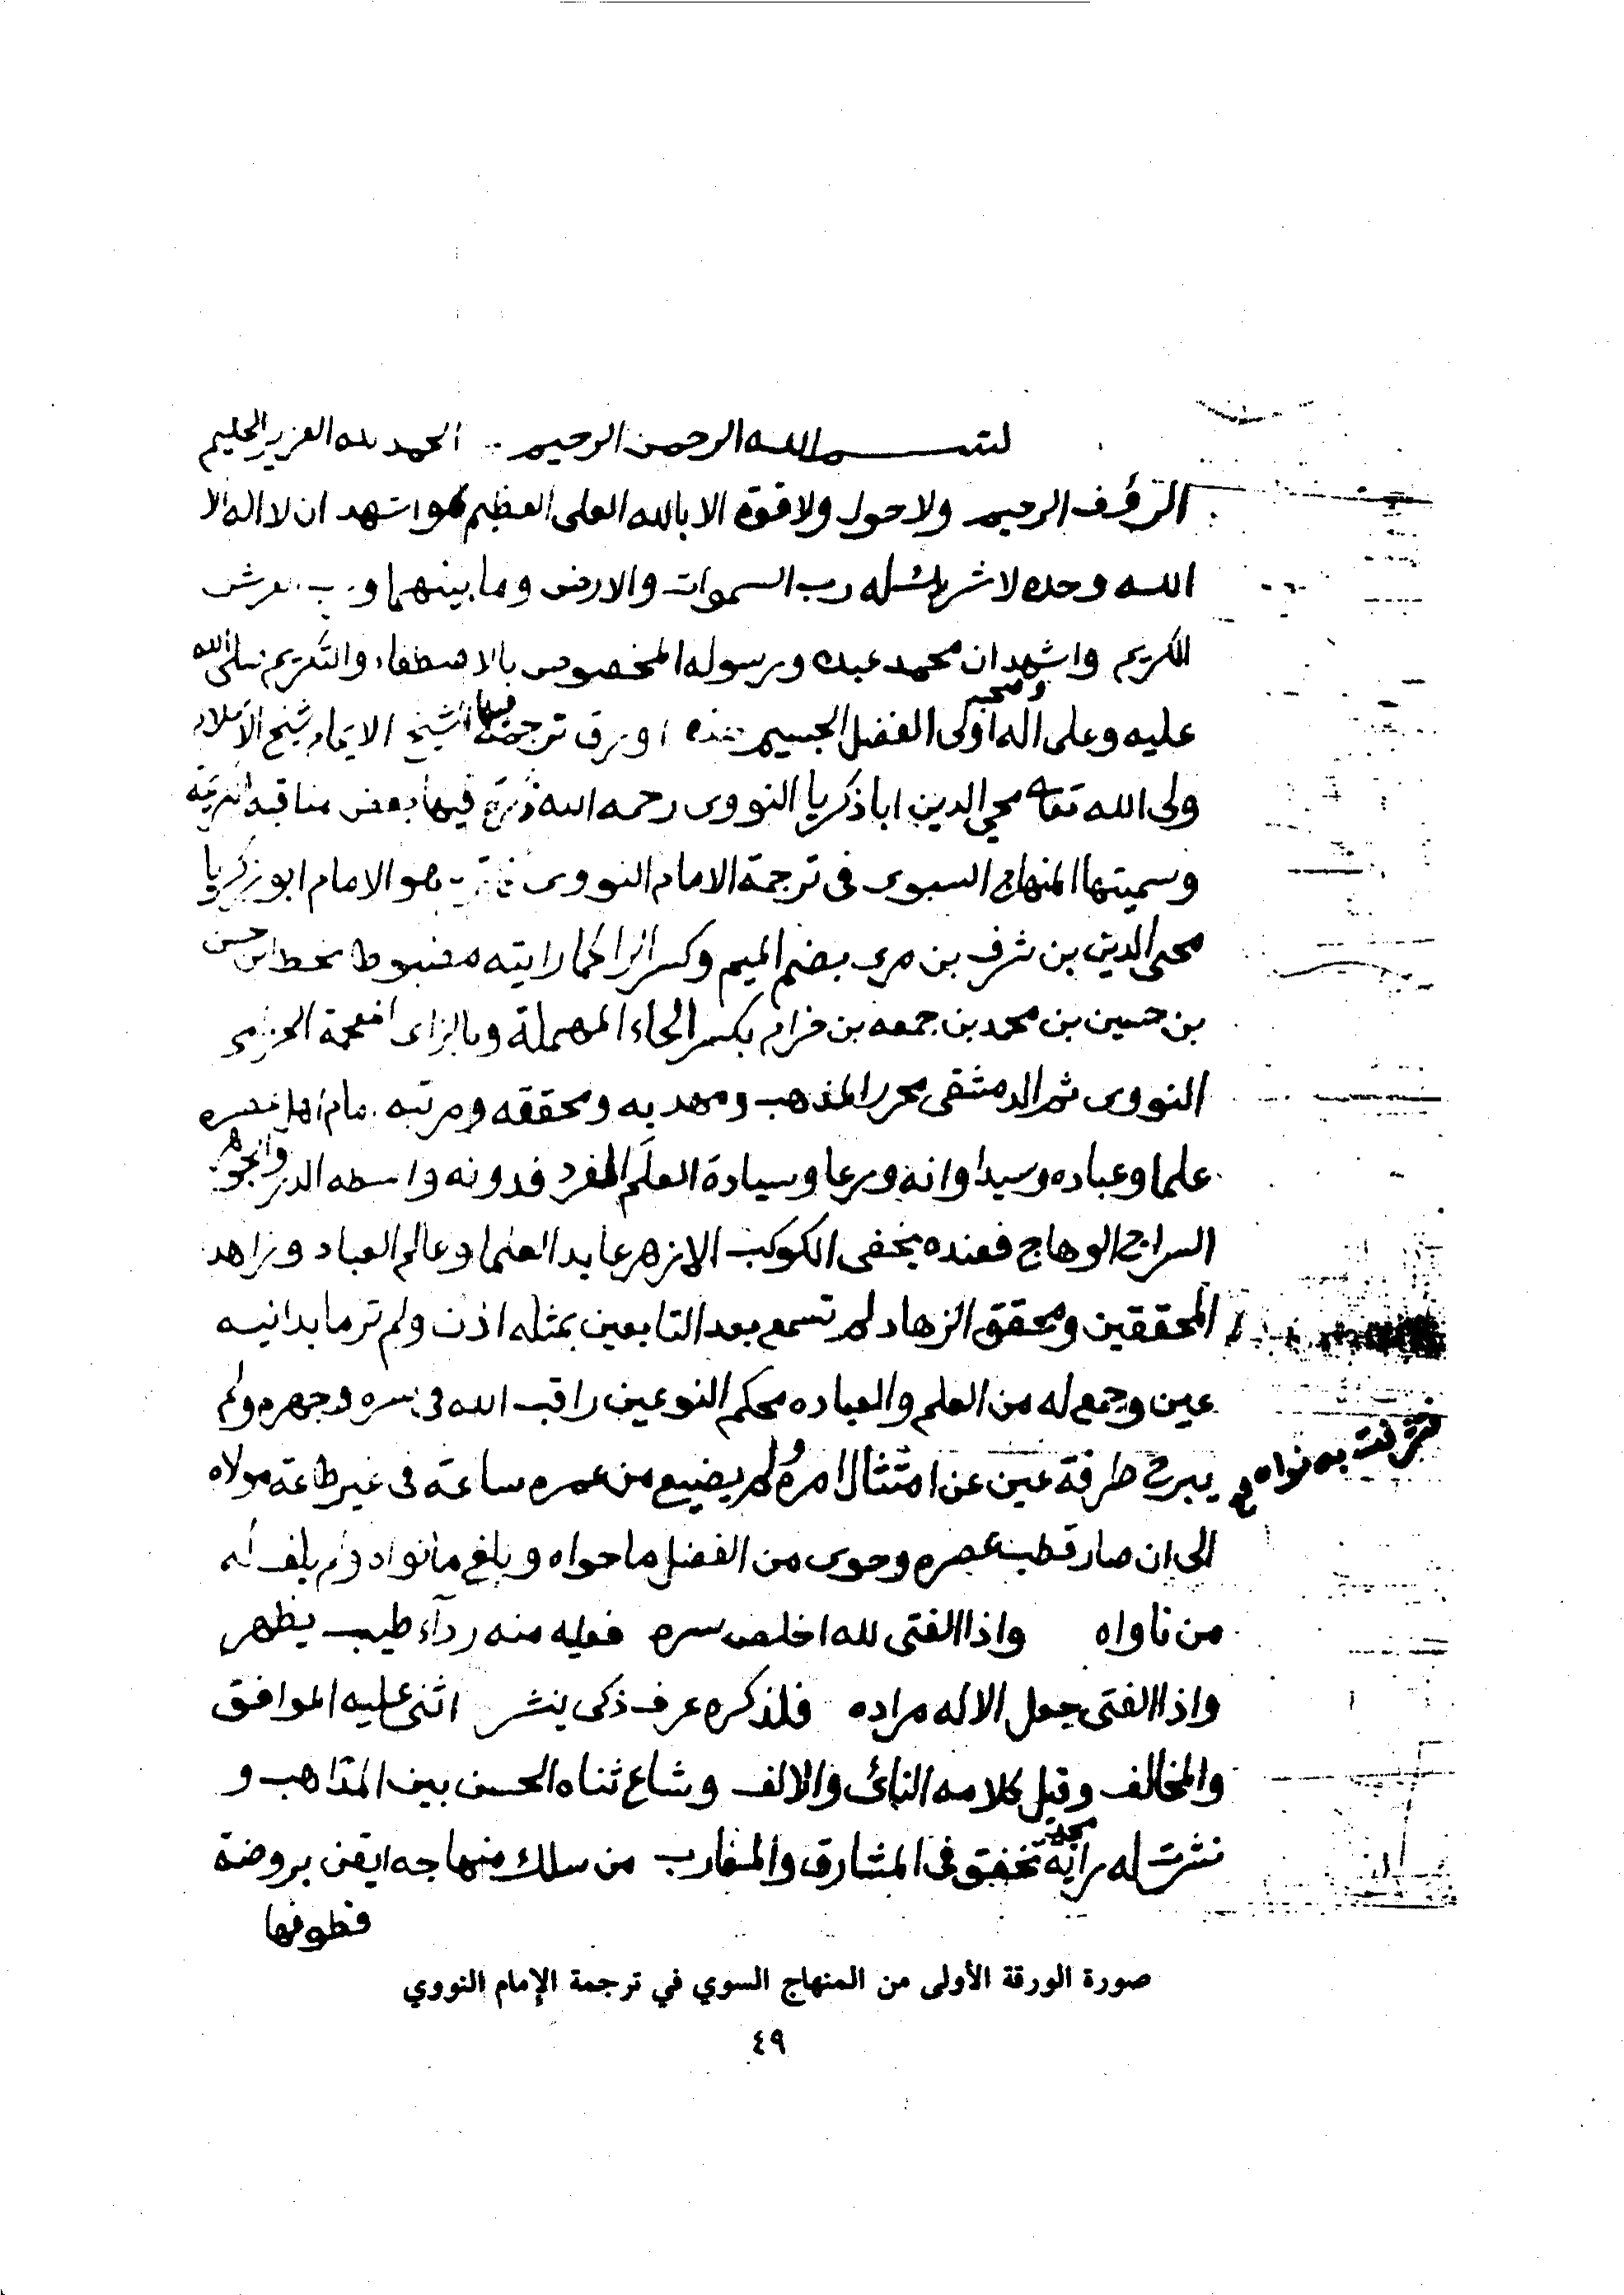 بسم الله الرحمن الرحيم الحمد لله العزيز الحليم
الرؤف الرحيم ولا حول ولا قوة الا بالله العلى العظيم واشهد ان لا اله الا
الله وحده لا شريك له رب السموات والارض وما بينهما ورب العرش
الكريم واشهد ان محمد عبده ورسوله المخصوص بالاصطفاء والتكريم صلى الله
عليه وعلى اله وصحبه اولى الفضل الجسيم هذه اوراق ترجمت فيها الشيخ الامام شيخ الاسلام
ولى الله تعالى محيي الدين ابا ذكريا النووى رحمه الله فيها بعض مناقبه
وسميتها المنهاج السوى فى ترجمة الامام النووى هو الامام ابو زكريا
محيى الدين بن شرف بن مرى بضم الميم وكسر الرا كما رايته مضبوطا بخطه ابن حسن
بن حسين بن محمد بن جمعه بن حزام بكسر الحاء المهملة وبالزاى المعجمة الحزامى
النووى ثم الدمشقى محرر المذهب ومهذبه ومحققه ومرتبه امام اهل عصره
علما وعباده وسيد اوانه ورعا وسيادة العلم المفرد فدونه واسطه الدر والجوهر
السراج الوهاج فعنده يخفى الكوكب الازهر عابد العلما وعالم العباد وزاهد
المحققين ومحقق الزهاد لم تسمع بعد التابعين بمثله اذن ولم تر ما يدانيه
عين وجمع له من العلم والعباده محكم النوعين راقب الله فى سره وجهره ولم
يبرح طرفة عين عن امتثال امره ولم يضيع من عمره ساعة فى غير طاعة مولاه
الى ان صار قطب عصره وحوى من الفضل ما حواه وبلغ ما نواه
فتشرفت به نواه
ولم يلف له
من ناواه واذا الفتى لله اخلص سره فعليه منه رداء طيب يظهر
واذا الفتى جعل الاله مراده فلذكره عرف ذكى ينشر اثنى عليه الموافق
والمخالف وقبل كلامه النائ والالف وشاع ثناه الحسن بين المذاهب و
نشرت له راية مجد تخفق فى المشارق والمغارب من سلك منهاجه ايقن بروضة
قطوفها
صورة الورقة الأولى من المنهاج السوي في ترجمة الإمام النووي
٤٩